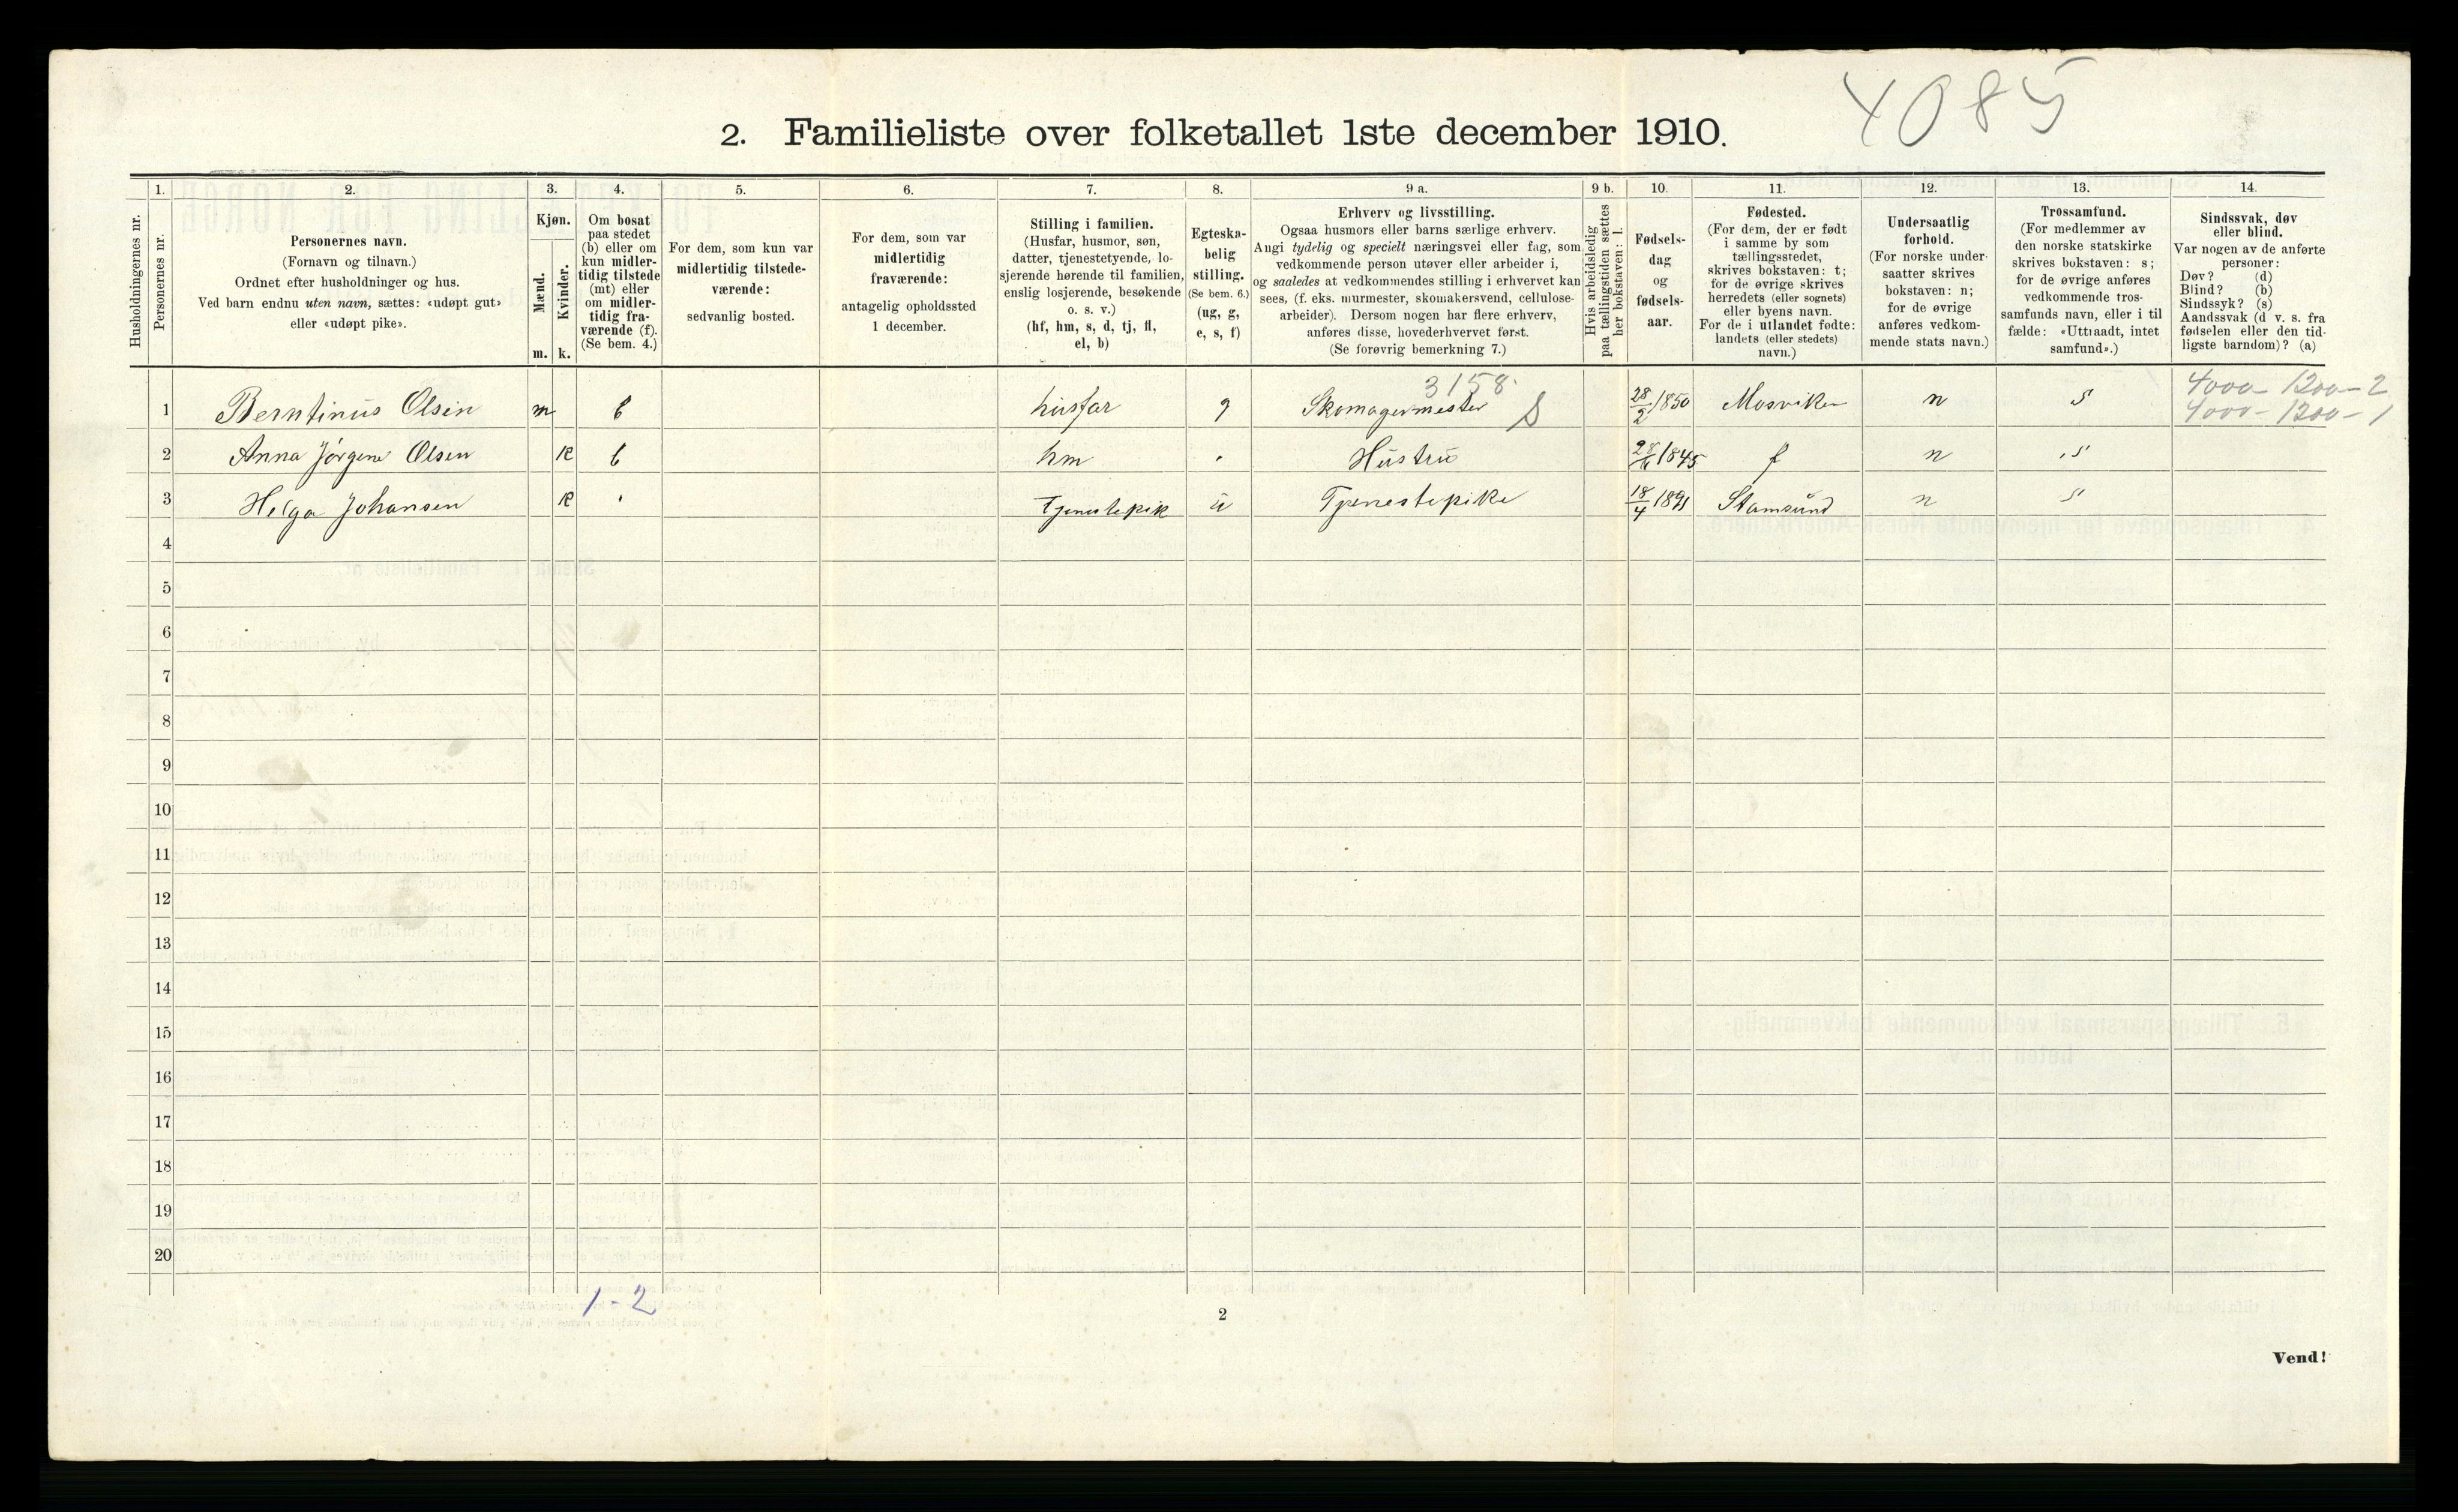 4085
2. Familieliste over folketallet 1ste december 1910.
1. 2. 3. 4. 5. 6. 7. 8. 9 a. 9 b. 10. 11. 12. 13. 14.
Husholdningernes nr.
Personernes nr.
Personernes navn.
(Fornavn og tilnavn.)
Ordnet efter husholdninger og hus.
Ved barn endnu uten navn, sættes: «udøpt gut»
eller «udøpt pike».
Kjøn.
Mænd.
Kvinder.
m. k.
Om bosat
paa stedet
(b) eller om
kun midler-
tidig tilstede
(mt) eller
om midler-
tidig fra-
værende (f).
(Se bem. 4.)
For dem, som kun var
midlertidig tilstede-
værende:
sedvanlig bosted.
For dem, som var
midlertidig
fraværende:
antagelig opholdssted
1 december.
Stilling i familien.
(Husfar, husmor, søn,
datter, tjenestetyende, lo-
sjerende hørende til familien,
enslig losjerende, besøkende
o. s. v.)
(hf, hm, s, d, tj, fl,
el, b)
Egteska-
belig
stilling.
(Se bem. 6.)
(ug, g,
e, s, f)
Erhverv og livsstilling.
Ogsaa husmors eller barns særlige erhverv.
Angi tydelig og specielt næringsvei eller fag, som
vedkommende person utøver eller arbeider i,
og saaledes at vedkommendes stilling i erhvervet kan
sees, (f. eks. murmester, skomakersvend, cellulose-
arbeider). Dersom nogen har flere erhverv,
anføres disse, hovederhvervet først.
(Se forøvrig bemerkning 7.)
Hvis arbeidsledig
paa tællingstiden sættes
her bokstaven: l.
Fødsels-
dag
og
fødsels-
aar.
Fødested.
(For dem, der er født
i samme by som
tællingsstedet,
skrives bokstaven: t;
for de øvrige skrives
herredets (eller sognets)
eller byens navn.
For de i utlandet fødte:
landets (eller stedets)
navn.)
Undersaatlig
forhold.
(For norske under-
saatter skrives
bokstaven: n;
for de øvrige
anføres vedkom-
mende stats navn.)
Trossamfund.
(For medlemmer av
den norske statskirke
skrives bokstaven: s;
for de øvrige anføres
vedkommende tros-
samfunds navn, eller i til
fælde: «Uttraadt, intet
samfund».)
Sindssvak, døv
eller blind.
Var nogen av de anførte
personer:
Døv? (d)
Blind? (b)
Sindssyk? (s)
Aandssvak (d v. s. fra
fødselen eller den tid-
ligste barndom)? (a)
3158
4000 - 1200 - 2
1 Berntinus Olsen m b husfar g Skomagermester S 28/2 1850 Mosviken n s 4000 - 1200 - 1
2 Anna Jørgine Olsen k b hm Hustru 1845 n s
3 Helga Johansen k Tjenestepik u Tjenestepike 18/4 1891 Stamsund n s
4
5
6
7
8
9
10
11
12
13
14
15
16
17
18
19
20
1 - 2
2
Vend!